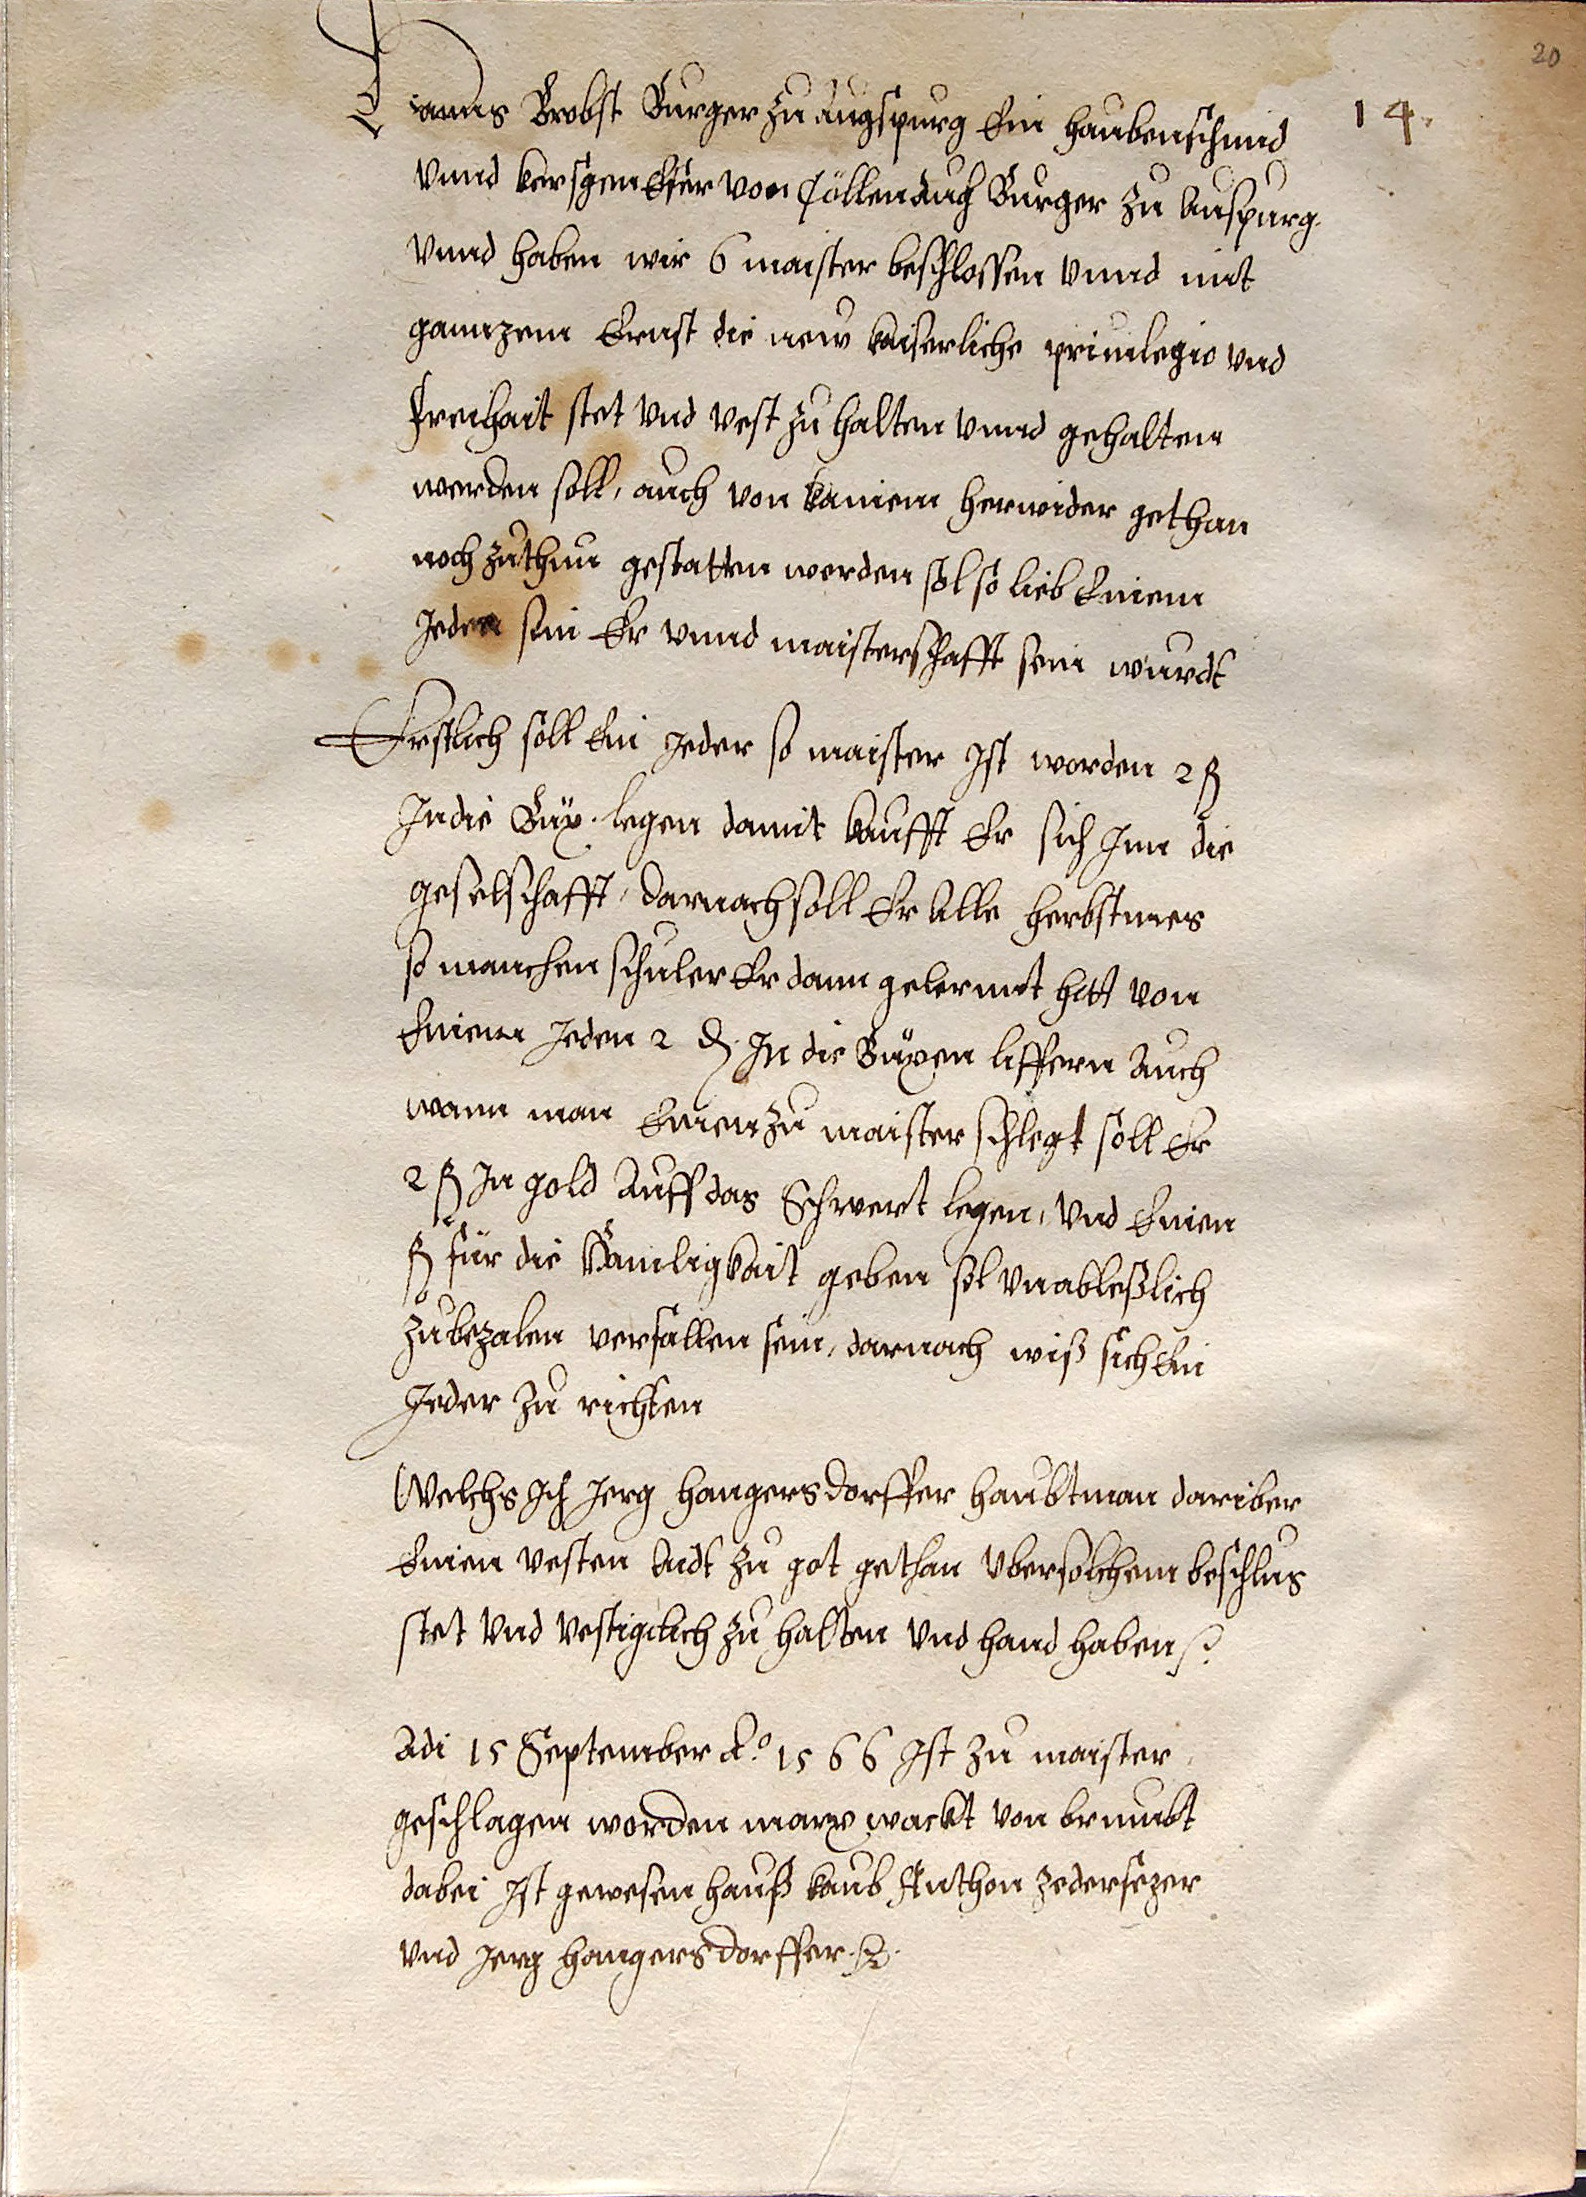 20
14.
Hanns Brobst Burger zu Augspurg Ein haubenschmid
vnnd kersgen Eser von Cöllen auch Burger zu Auspurg.
vnnd haben wir 6 maister beschlossen vnnd mit
gannzem Ernst die new kaiserliche priuilegio vnd
freihait stet vnd vest zu halten vnnd gehalten
werden soll, auch von kainem herwider gethan
noch zuthun gestatten werden sol so lieb Einem
Jeden sein Er vnnd maisterschafft sein wurdt
Erstlich soll Ein Jeder so maister Ist worden 2 fl
In die Büx legen damit kaufft Er sich Inn die
geselschafft, darnach soll Er Alle herbstmes
so manchen schuler Er dann gelernnt hatt von
Einem Jeden 2 d. In die Büxen liffern Auch
wann man Einen zu maister schlegt soll Er
2 fl In gold Auff das Schwert legen, vnd Einen
fl für die Hainligkait geben sol vnableßlich
zubezalen verfallen sein, darnach wiß sich Ein
Jeder zu richten
Welchs Ich Jerg hangersdorffer haubtman dariber
Einen vesten Aidt zu got gethan vber solchem beschlus
stet vnd vestigclich zu halten vnd hand haben
Adi 15 September Ao. 1566 Ist zu maister
geschlagen worden marx wackt von
dabei Ist gewesen hanß kaub Anthon zedersezer
vnd Jerg hangersdorffer